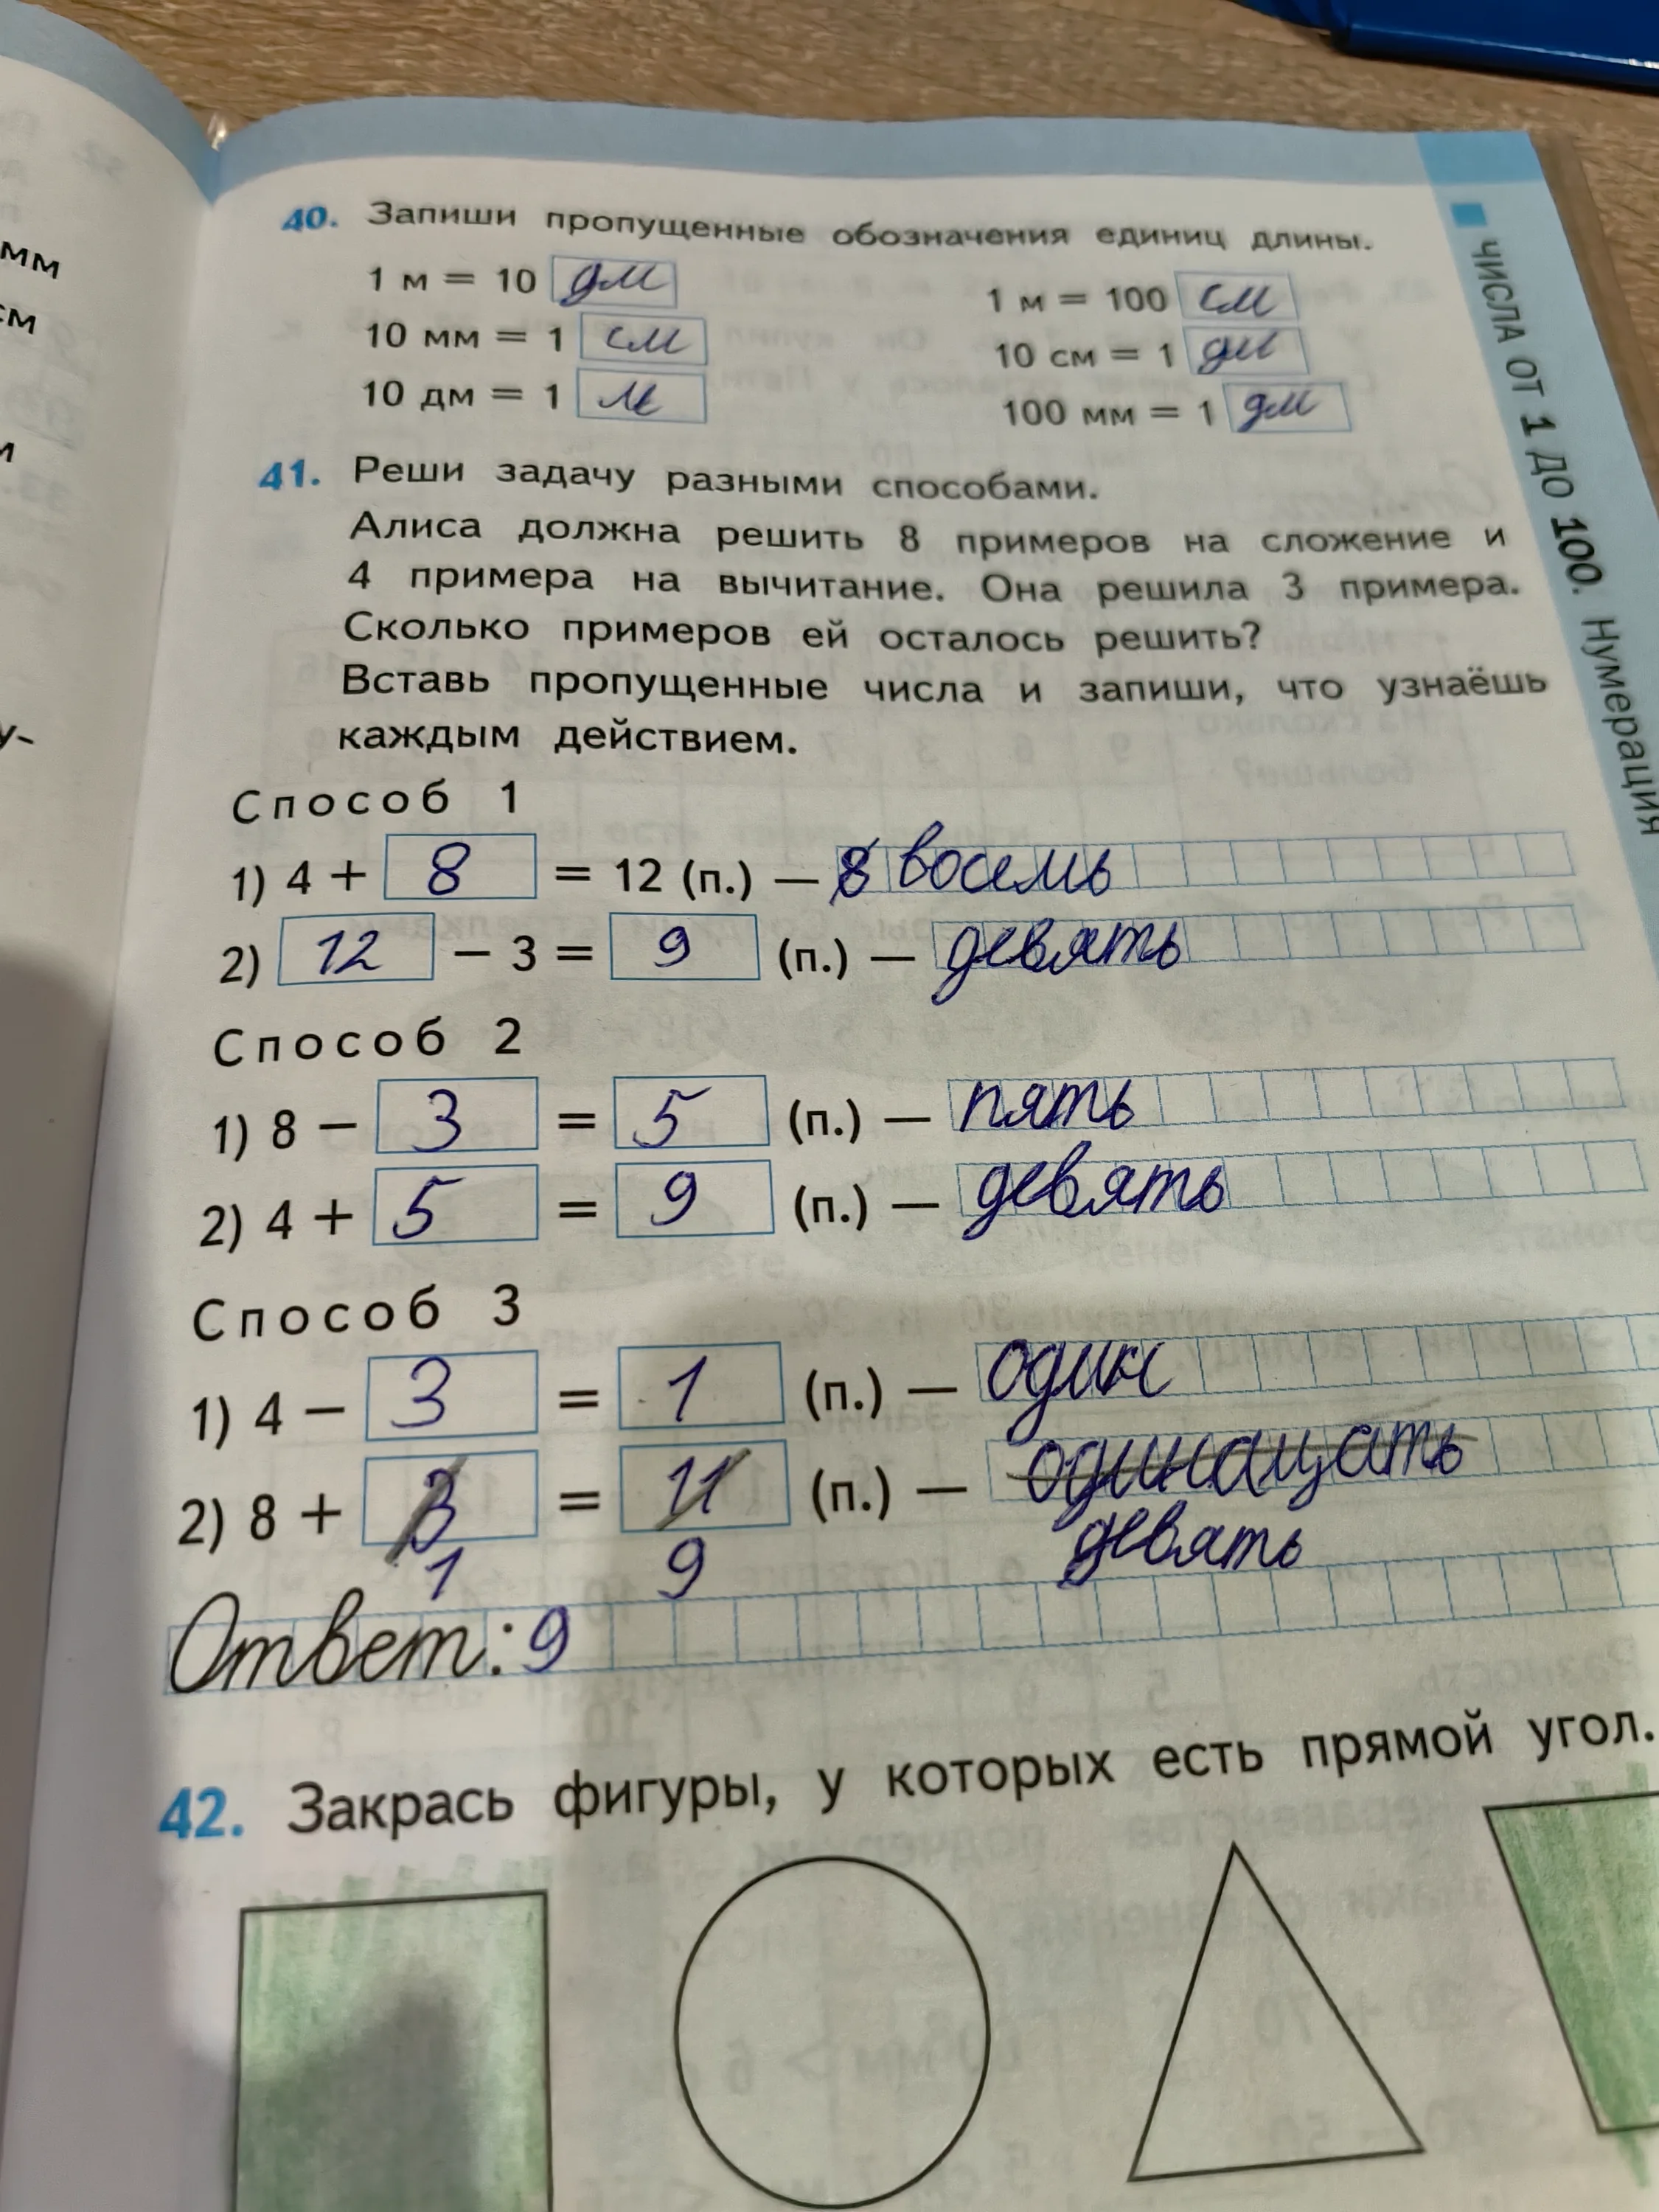 мм
см
м
у-
40. Запиши пропущенные обозначения единиц длины.
1 м = 10 дм
1 м = 100 см
10 мм = 1 см
10 см = 1 дм
10 дм = 1 м
100 мм = 1 дм
41. Реши задачу разными способами.
Алиса должна решить 8 примеров на сложение и
4 примера на вычитание. Она решила 3 примера.
Сколько примеров ей осталось решить?
Вставь пропущенные числа и запиши, что узнаёшь
каждым действием.
Способ 1
1) 4 + 8 = 12 (п.) — 8 восемь
2) 12 − 3 = 9 (п.) — девять
Способ 2
1) 8 − 3 = 5 (п.) — пять
2) 4 + 5 = 9 (п.) — девять
Способ 3
1) 4 − 3 = 1 (п.) — один
2) 8 + 3 = 11 (п.) — одинащать
1 9 девять
Ответ: 9
42. Закрась фигуры, у которых есть прямой угол.
ЧИСЛА ОТ 1 ДО 100. Нумерация